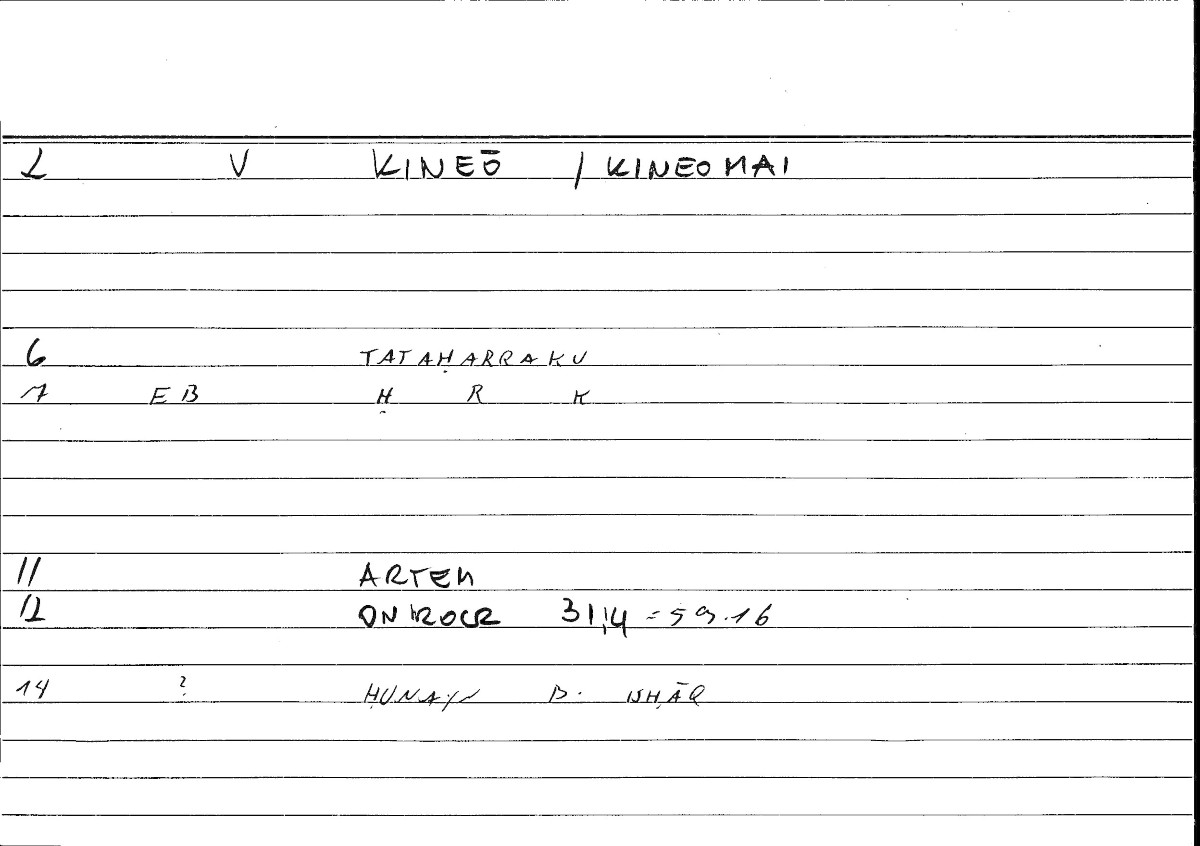 2 V KINEŌ / KINEOMAI
6 TATAḤARRAKU
7 EB Ḥ R K
11 ARTEM
12 ONIROCR 31,4 = 59.16
14 ? ḤUNAYN B. ISḤĀQ